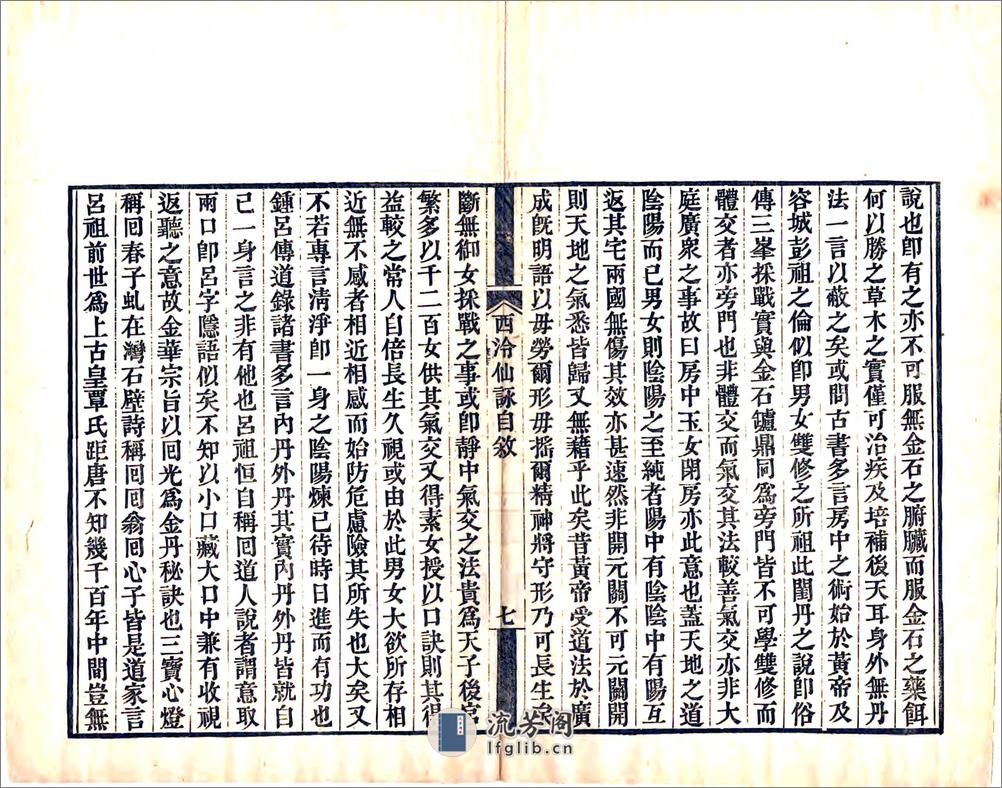 說也卽有之亦不可服無金石之腑臟而服金石之藥餌
何以勝之草木之實僅可治疾及培補後天耳身外無丹
法一言以蔽之矣或問古書多言房中之術始於黃帝及
容城彭祖之倫似卽男女雙修之所祖此閨丹之說卽俗
傳三峯採戰實與金石鑪鼎同爲旁門皆不可學雙修而
體交者亦旁門也非體交而氣交其法較善氣交亦非大
庭廣衆之事故曰房中玉女閉房亦此意也蓋天地之道
陰陽而已男女則陰陽之至純者陽中有陰陰中有陽互
返其宅兩國無傷其效亦甚速然非開元關不可元關開
則天地之氣悉皆歸又無藉乎此矣昔黃帝受道法於廣
成旣明語以毋勞爾形毋搖爾精神將守形乃可長生矣
西泠仙詠自敘
七
斷無御女採戰之事或卽靜中氣交之法貴爲天子後宮
繁多以千二百女供其氣交又得素女授以口訣則其得
益較之常人自倍長生久視或由於此男女大欲所存相
近無不感者相近相感而始防危慮險其所失也大矣又
不若專言淸淨卽一身之陰陽煉已待時日進而有功也
鍾呂傳道錄諸書多言內丹外丹其實內丹外丹皆就自
已一身言之非有他也呂祖恒自稱回道人說者謂意取
兩口卽呂字隱語似矣不知以小口藏大口中兼有收視
返聽之意故金華宗旨以回光爲金丹秘訣也三寶心燈
稱回春子虬在灣石壁詩稱回回翁回心子皆是道家言
呂祖前世爲上古皇覃氏距唐不知幾千百年中間豈無
流芳閣
lfglib.cn